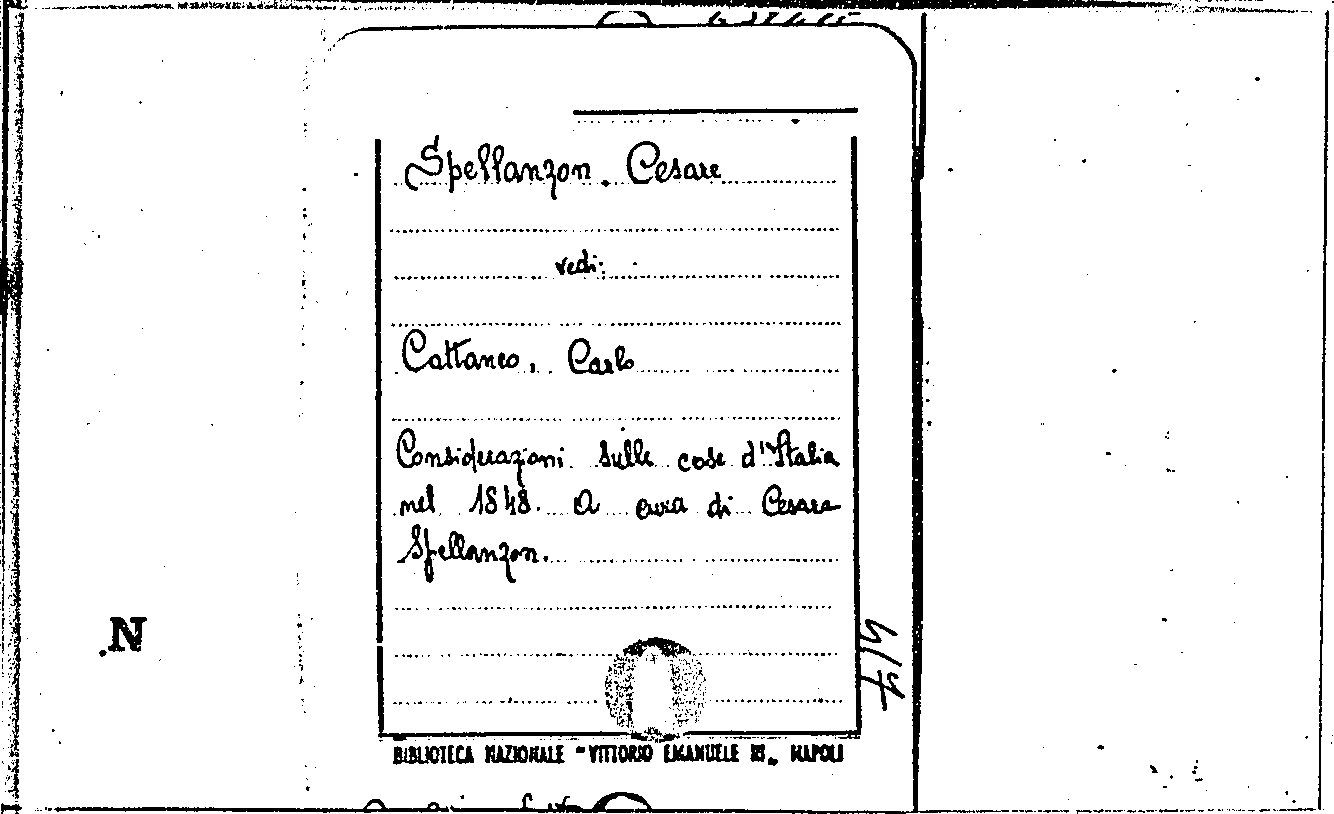 Spellanzon, Cesare
vedi:
Cattaneo, Carlo
Considerazioni sulle cose d'Italia
nel 1848. A cura di Cesare
Spellanzon.
N
417
BIBLIOTECA NAZIONALE "VITTORIO EMANUELE III" NAPOLI